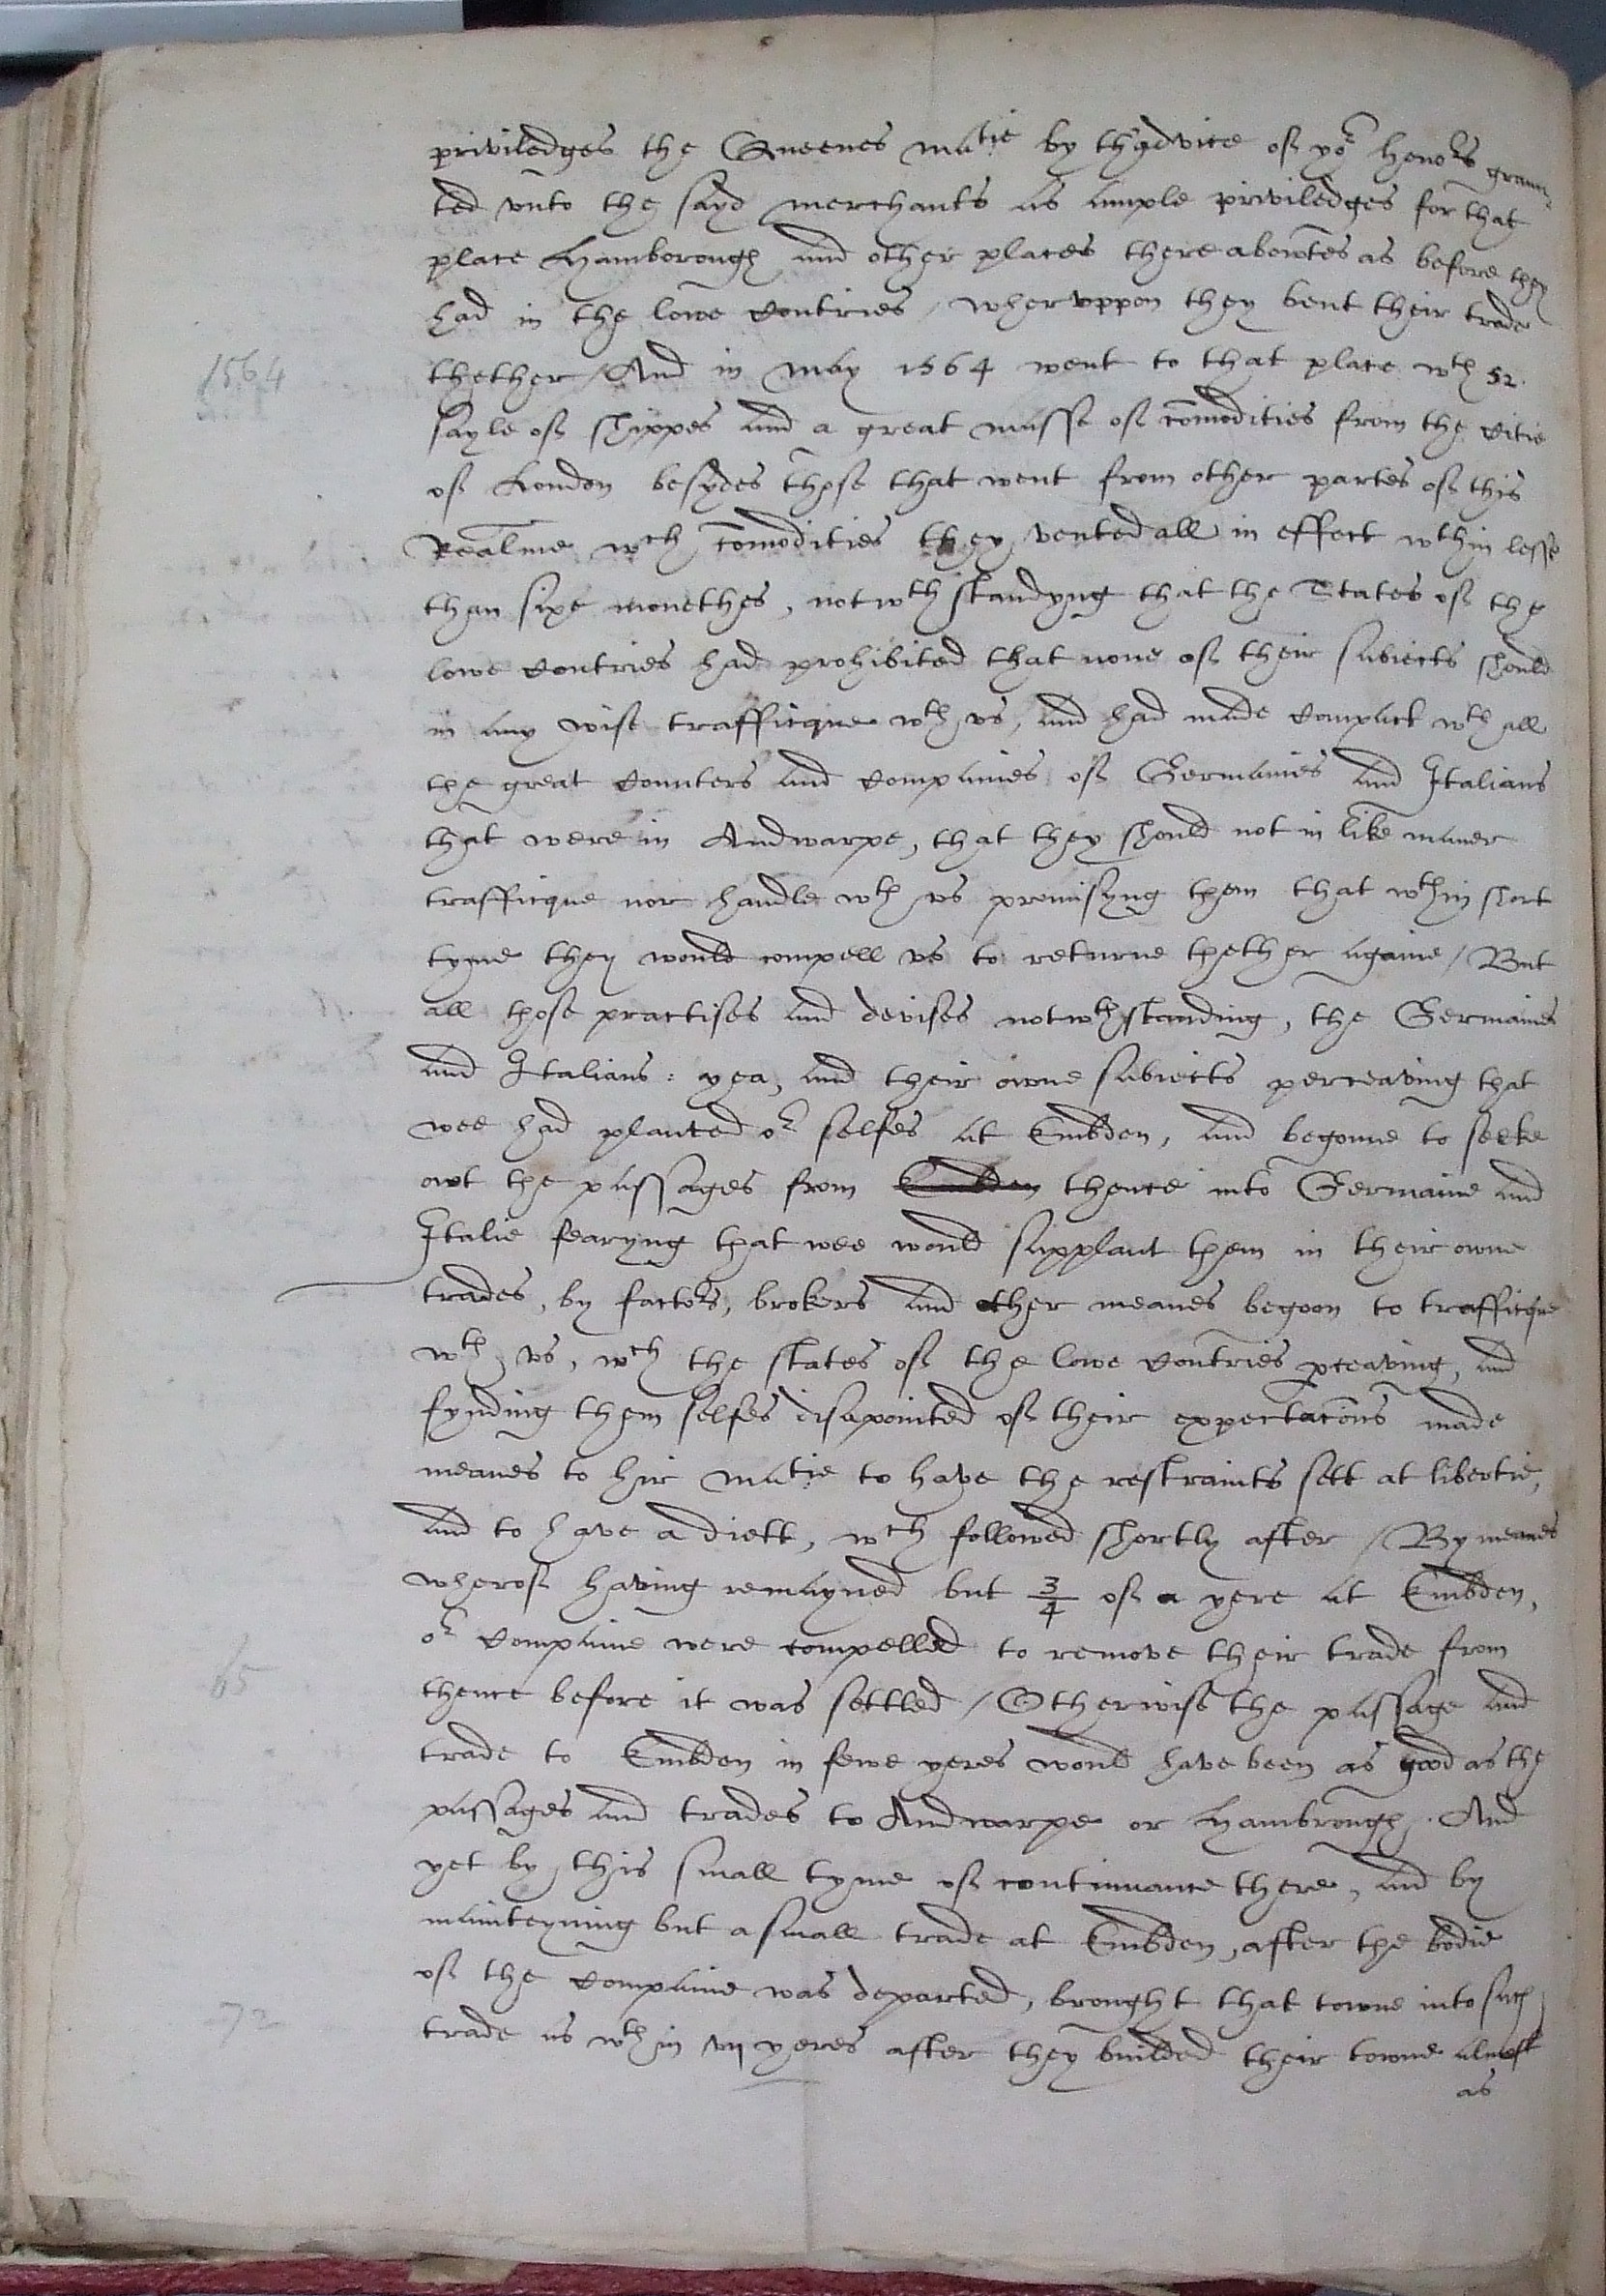 priviledges the Queenes matie by thadvice of yor honors graun
ted vnto the sayd merchants as ample priviledges for that
place Hamborough and other places there abowtes as before they
had in the lowe Contries / wher vppon they bent their trade
thether / And in may 1564 went to that place wth 52.
1564
sayle of shippes and a great masse of comodities from the Citie
of London besydes those that went from other partes of this
Realme wch comodities they vented all in effect wthin lesse
then sixe monethes, notwthstandyng that the States of the
lowe Contries had prohibited that none of their subiects should
in any wise trafficque wth vs, and had made Compact wth all
the great Counters and Companies of Germaines and Italians
that were in Andwarpe, that they should not in like maner
trafficque nor handle wth vs promisyng them that wthin short
tyme they would compell vs to returne thether againe / But
all those practises and devises notwthstanding, the Germaines
and Italians : yea, and their owne subiects perceaving that
wee had planted or selfes at Embden, and begonne to seeke
owt the passages from Embden thence into Germaine and
Italie fearyng that wee would supplant them in their owne
trades, by factors, brokers and other meanes begoon to trafficque
wth vs, wch the states of the lowe Contries pceaving, and
fynding them selfes disapointed of their expectacons made
meanes to hir matie to have the restraints sett at libertie,
and to have a diett, wch followed shortly after / By meanes
wherof having remayned but 3/4 of a yere at Embden,
or Companie were compelled to remove their trade from
65
thence before it was settled / Otherwise the passage and
trade to Embden in fewe yeres would have been as good as the
passages and trades to Andwarpe or Hambrough . And
yet by this small tyme of continuance there, and by
mainteyning but a small trade at Embden, after the bodie
of the Companie was departed, brought that towne into such
72
trade as wthin vij yeres after they builded their towne almost
as